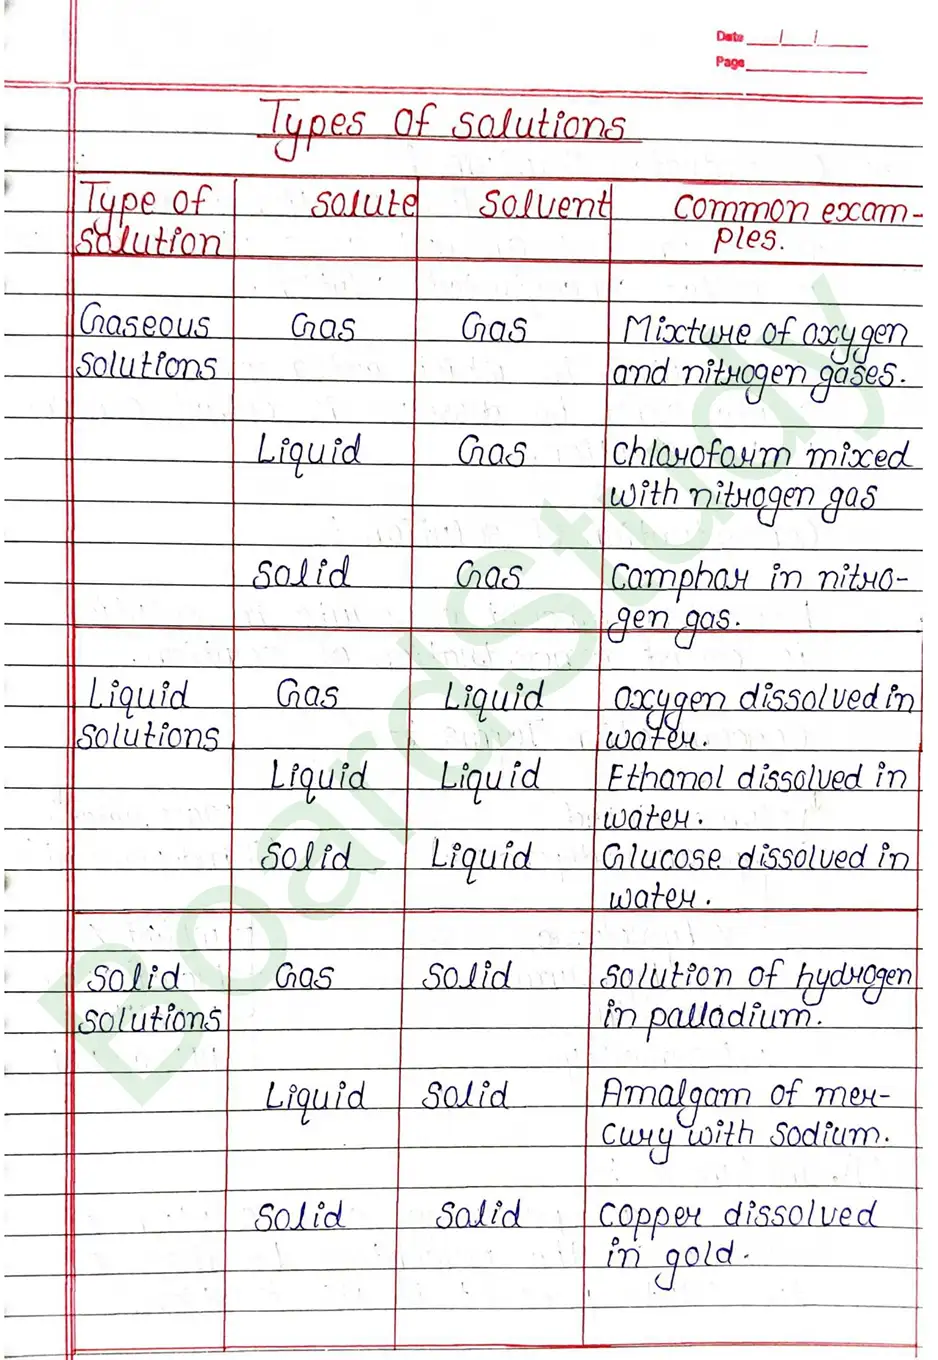 Date / /
Page
Types of solutions
Type of solution | solute | solvent | common exam-
ples.
Gaseous | Gas | Gas | Mixture of oxygen
solutions | and nitrogen gases.
Liquid | Gas | chloroform mixed
with nitrogen gas
solid | Gas | Camphor in nitro-
gen gas.
Liquid | Gas | Liquid | oxygen dissolved in
solutions | water.
Liquid | Liquid | Ethanol dissolved in
water.
Solid | Liquid | Glucose dissolved in
water.
Solid | Gas | Solid | solution of hydrogen
solutions | in palladium.
Liquid | Solid | Amalgam of mer-
cury with sodium.
Solid | Solid | copper dissolved
in gold.
BoardStudy